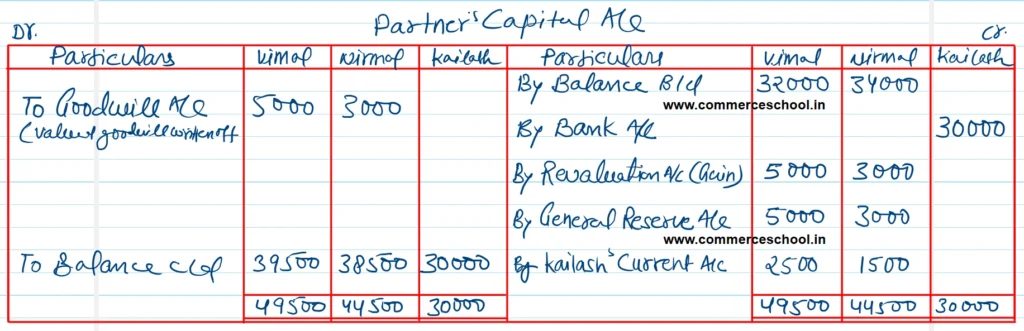 Partner's Capital A/c
Dr. Cr.
Particulars Vimal Nirmal Kailash Particulars Vimal Nirmal Kailash
By Balance B/d 32000 34000
www.commerceschool.in
To Goodwill A/c 5000 3000
(value of goodwill written off
By Bank A/c 30000
By Revaluation A/c (Gain) 5000 3000
By General Reserve A/c 5000 3000
www.commerceschool.in
To Balance c/d 39500 38500 30000 By Kailash's Current A/c 2500 1500
49500 44500 30000 49500 44500 30000